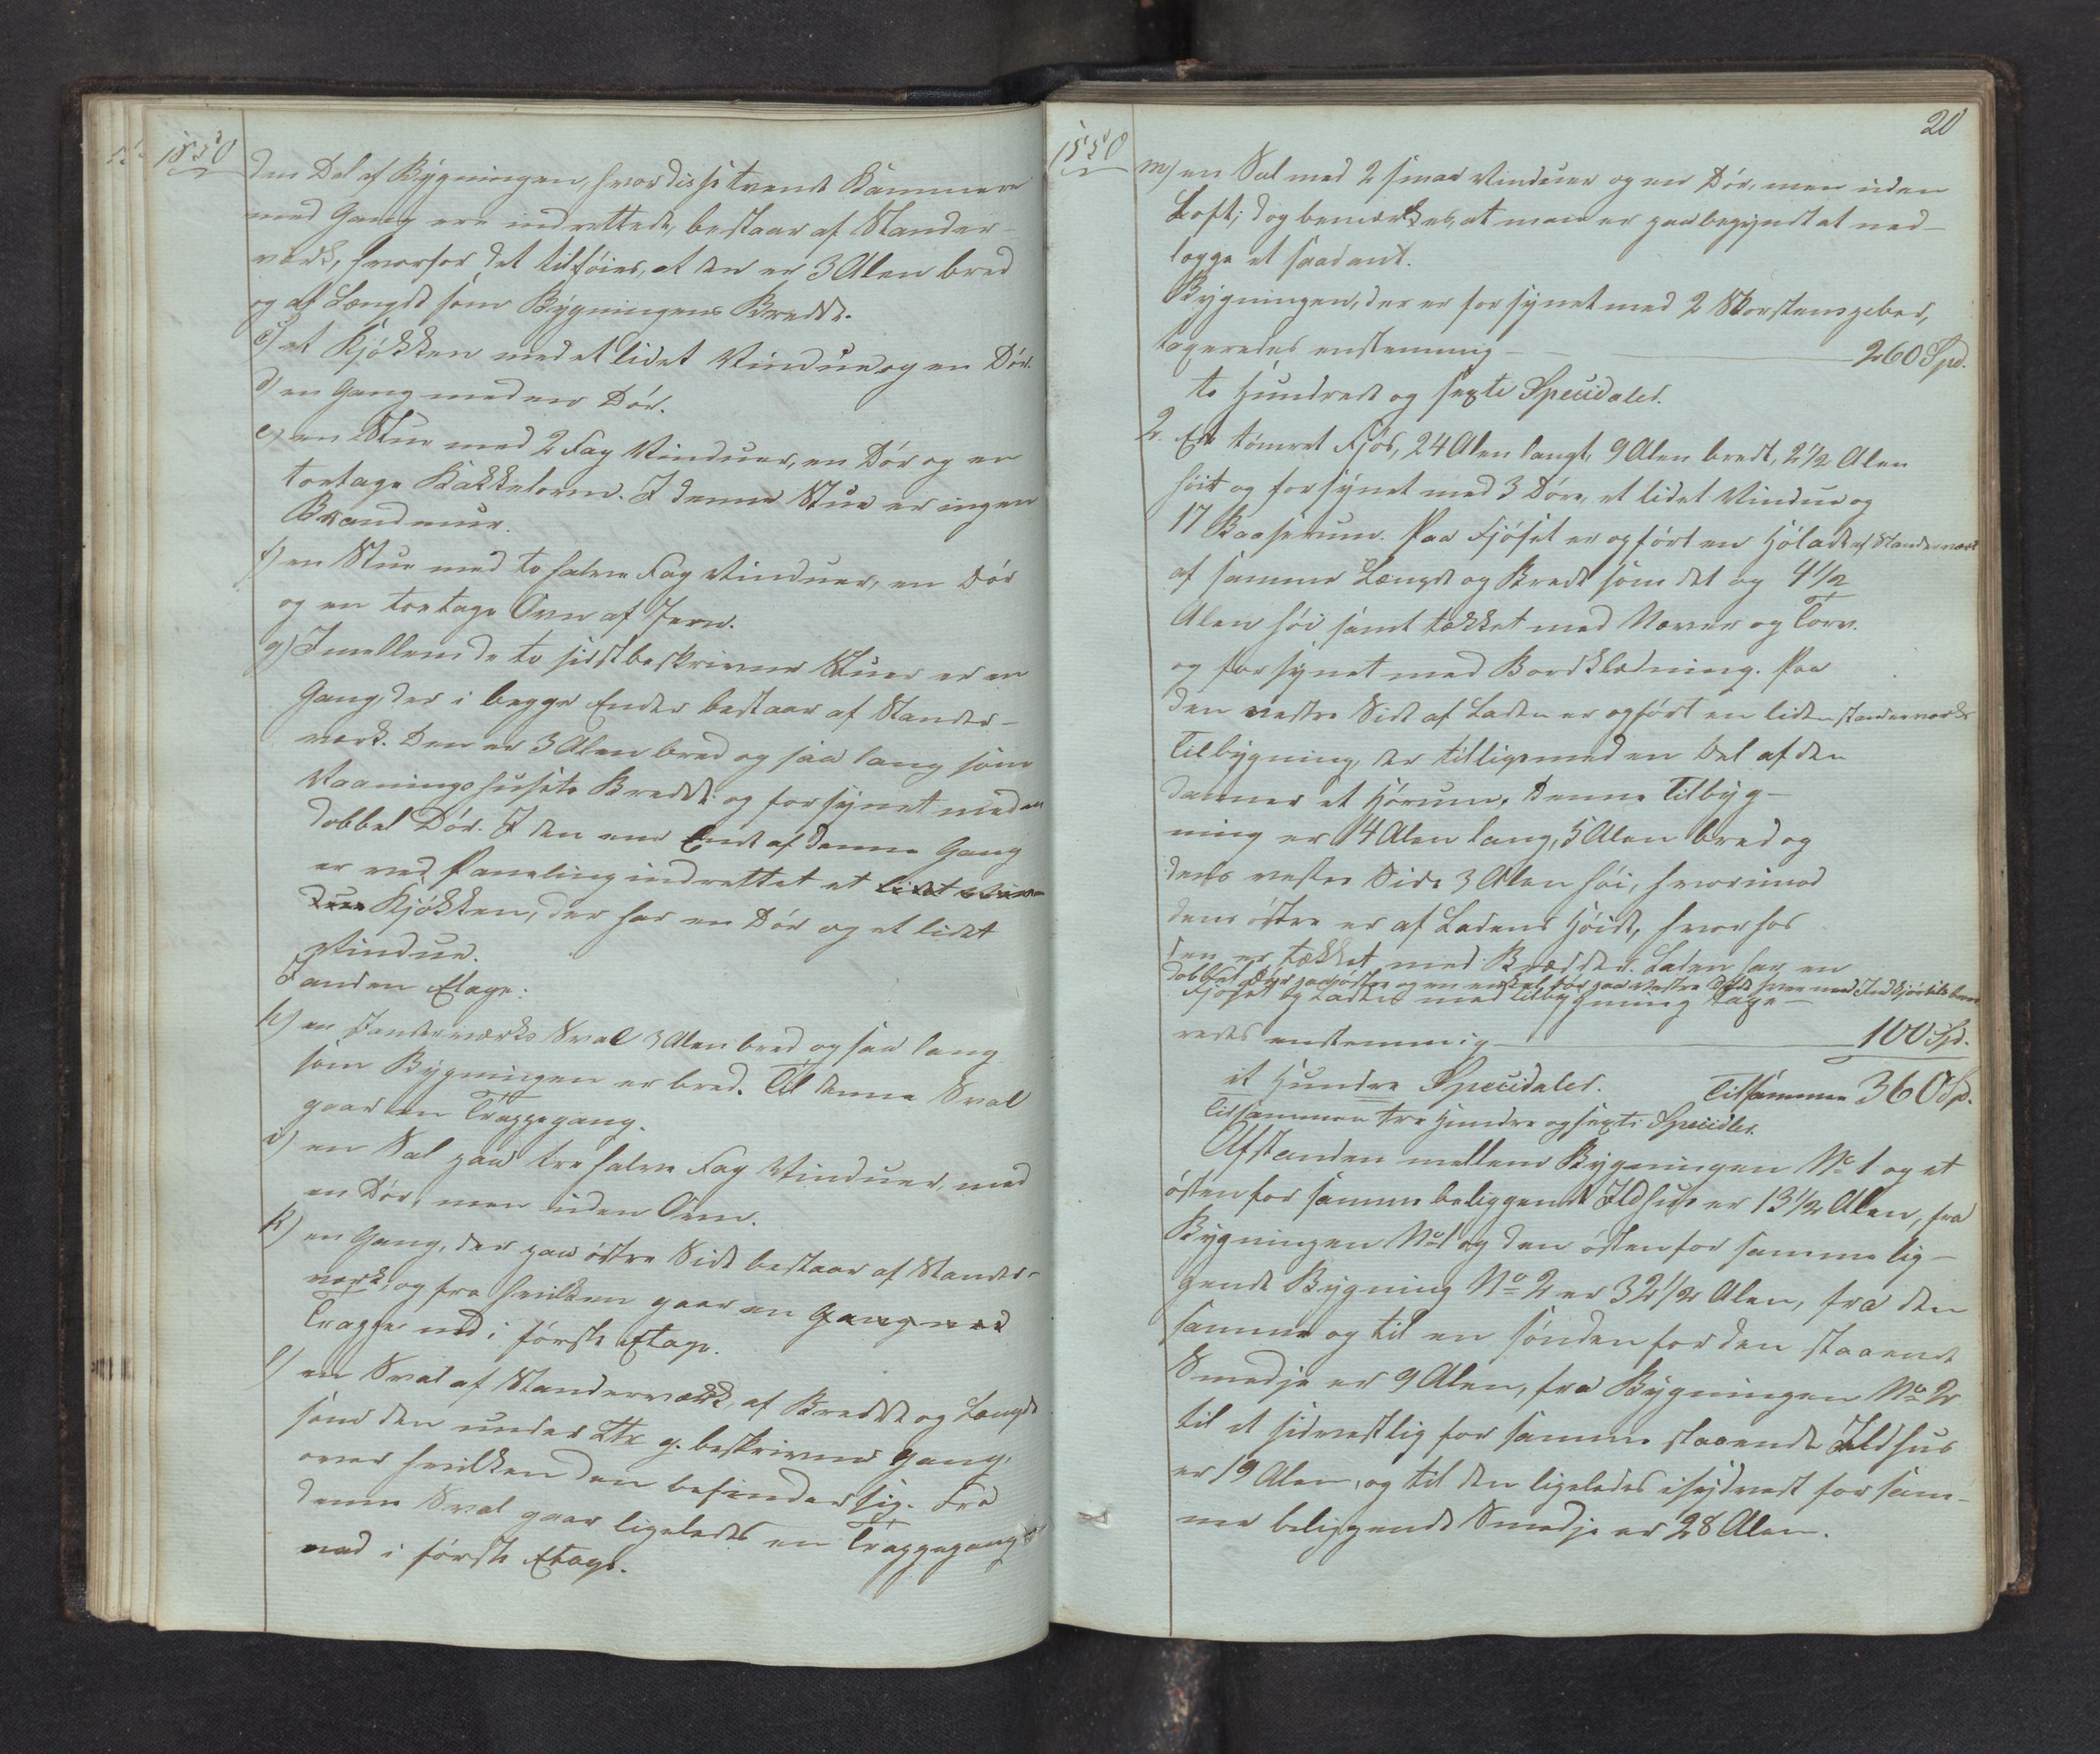 1850
den Del af Bygningen, hvor disse tvende Kammere
med Gang ere indrettede, bestaar af Stander-
værk, hvorfor det tilföies, at den er 3 Alen bred
og af Længde som Bygningens Bredde.
c) et Kjökken med et lidet Vindue og en Dör.
d) en Gang med en Dör.
e) en Stue med 2 Fag Vinduer, en Dör og en
toetages Kakkelovn. I denne Stue er ingen
Brandmur.
f) en Stue med to halve Fag Vinduer, en Dör
og en toetages Ovn af Jern.
g) Imellem de to sidstbeskrivne Stuer er en
Gang, der i begge Ender bestaar af Stander-
værk. Den er 3 Alen bred og saa lang som
Vaaningshusets Bredde og forsynet med en
dobbel Dör. I den ene Ende af denne Gang
er ved Paneling indrettet et lidet Vin-
due Kjökken, der har en Dör og et lidet
Vindue.
I anden Etage:
h) en Standerværks Sval 3 Alen bred og saa lang
som Bygningen er bred. Til denne Sval
gaar en Trappegang.
i) en Sal paa tre halve Fag Vinduer, med
en Dör, men uden Ovn.
k) en Gang, der paa östre Side bestaar af Stander-
værk, og fra hvilken gaar en Gang ned
Trappe ned i förste Etage.
l) en Sval af Standerværk, af Bredde og Længde
som den under Ltr. g. beskrivne Gang,
over hvilken den befinder sig. Fra
denne Sval gaar ligeledes en Trappegang
ned i förste Etage.
20
1850
m) en Sal med 2 smaa Vinduer og en Dör, men uden
Loft; dog bemærkes, at man er paabegyndt at ned-
lægge et saadant.
Bygningen, der er forsynet med 2 Skorstenspiber,
taxeredes enstemmig 260 Spd.
to Hundrede og sexti Speciedaler.
2. Et tömret Fjös, 24 Alen langt, 9 Alen bredt, 2 1/2 Alen
höit og forsynet med 3 Döre, et lidet Vindue og
17 Baaserum. Paa Fjöset er opfört en Hölade af Standerværk
af samme Længde og Bredde som det og 4 1/2
Alen höi samt tækket med Næver og Törv.
og forsynet med Bordklædning. Paa
den vestre Side af Laden er opfört en liden standerværks
Tilbygning, der tilligemed en Del af den
danner et Hörum. Denne Tilbyg-
ning er 14 Alen lang, 5 Alen bred og
dens vestre Side 3 Alen höi, hvorimod
dens östre er af Ladens Höide, hvorhos
den er tækket med Brædder. Laden har en
dobbel Dör paa östre og en enkel Dör paa vestre Side hver med Indkjörselsbro
Fjöset og Laden med Tilbygning taxe-
redes enstemmig 100 Spd.
et Hundre Speciedaler. Tilsammen 360 Sp.
Tilsammen tre Hundre og sexti Speciedlr.
Afstanden mellem Bygningen No 1 og et
östenfor samme beliggende Ildhus er 13 1/2 Alen, fra
Bygningen No 1 og den östenfor samme lig-
gende Bygning No 2 er 32 1/2 Alen, fra den
samme og til en söndenfor den staaende
Smedje er 9 Alen, fra Bygningen No 2
til et sidvestlig for samme staaende Ildhus
er 19 Alen, og til den ligeledes i sydvest for sam-
me beliggende Smedje er 28 Alen.